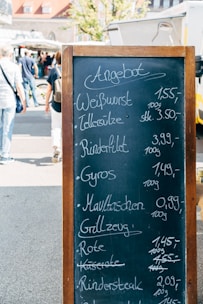 Angebot
Weißwurst 1,55,-
100g
Tellersülze stk 3.50,-
Rinderfilet 3,99,-
100g
Gyros 1,49,-
100g
Maultaschen 0,99,
Grillzeug 100g
Rote 1,45,-
100g
Käserote 1,55,-
Rindersteak 2,09,-
100g